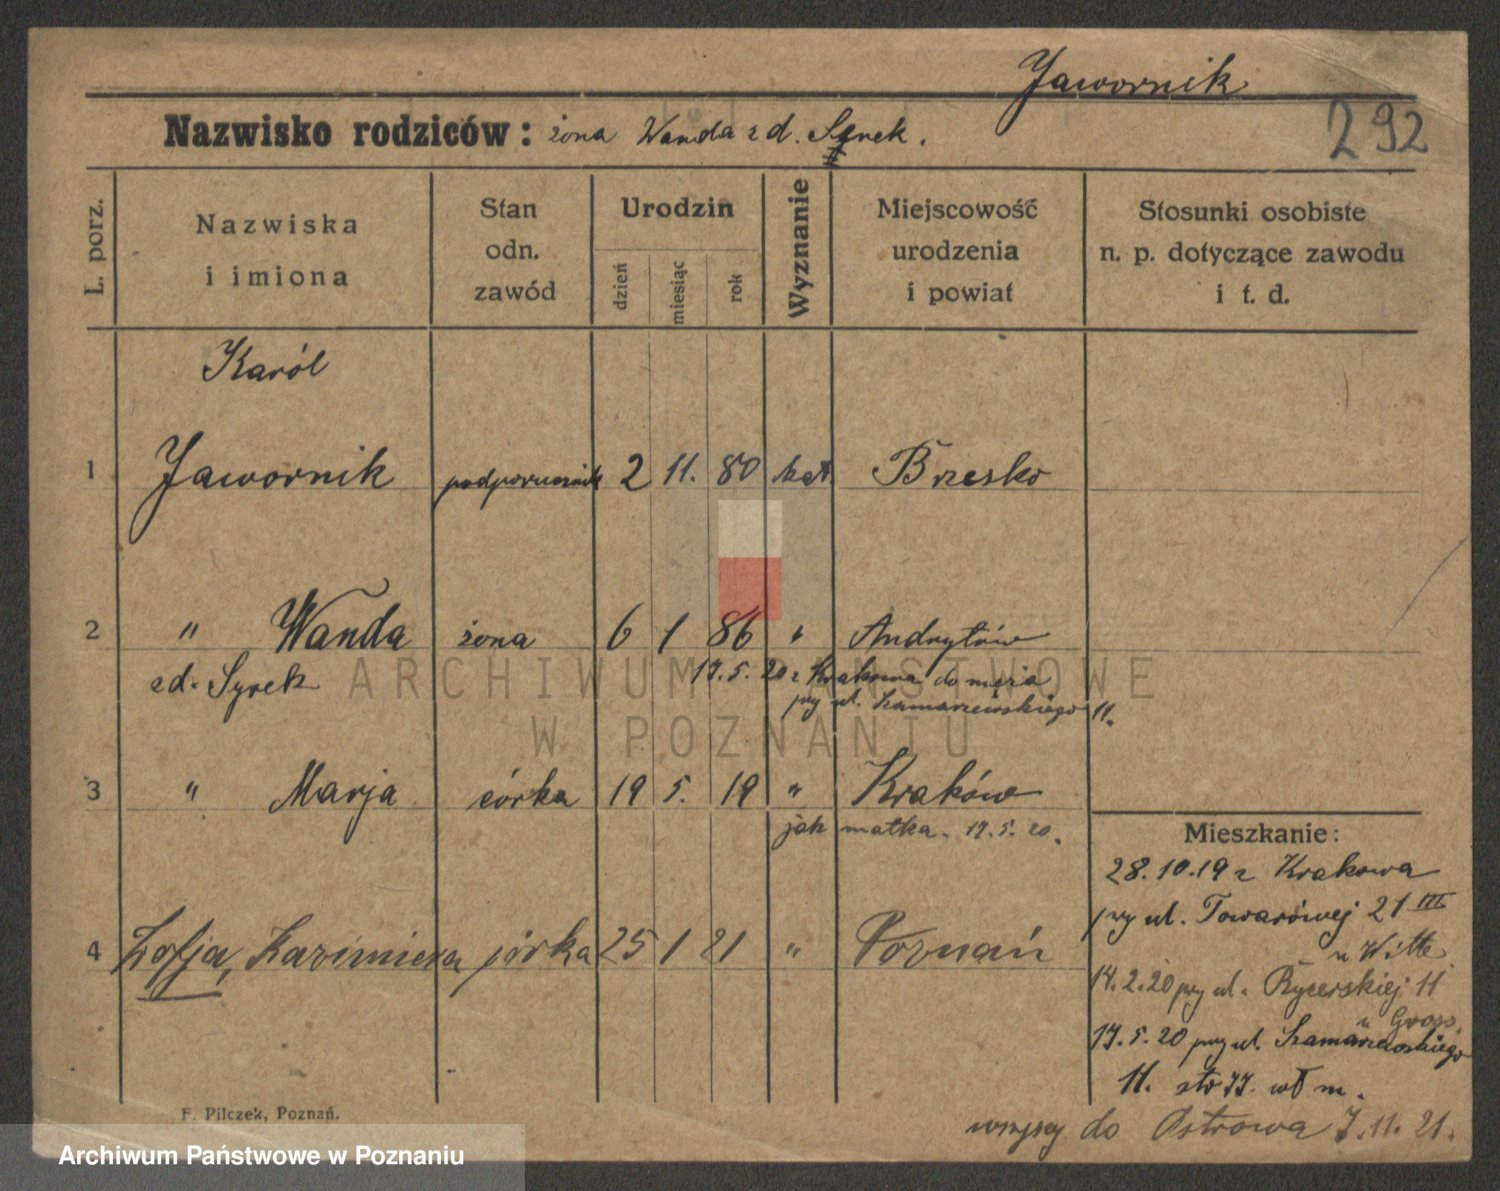 Jawornik
292
Nazwisko rodziców: żona Wanda z d. Syrek.
L. porz.
Nazwiska
i imiona
Stan
odn.
zawód
Urodzin
dzień
miesiąc
rok
Wyznanie
Miejscowość
urodzenia
i powiat
Stosunki osobiste
n. p. dotyczące zawodu
i t. d.
Karól
1 Jawornik podporucznik 2 11. 80 kat. Brzesko
2 " Wanda żona 6 1 86 " Andrytów
zd. Syrek
17. 5. 20 z Krakowa do męża
przy ul. Szamarzewskiego 11.
3 " Marja córka 19 5. 19 " Kraków
jak matka. 17. 5. 20.
4 Zofja, Kazimiera córka 25 1 21 " Poznań
Mieszkanie:
28. 10. 19 z Krakowa
przy ul. Towarowej 21 III
u Witte
14. 2. 20 przy ul. Rycerskiej 11
u Gross.
17. 5. 20 przy ul. Szamarzewskiego
11. m.
do Ostrowa 7. 11. 21.
F. Pilczek, Poznań.
ARCHIWUM PAŃSTWOWE
W POZNANIU
Archiwum Państwowe w Poznaniu